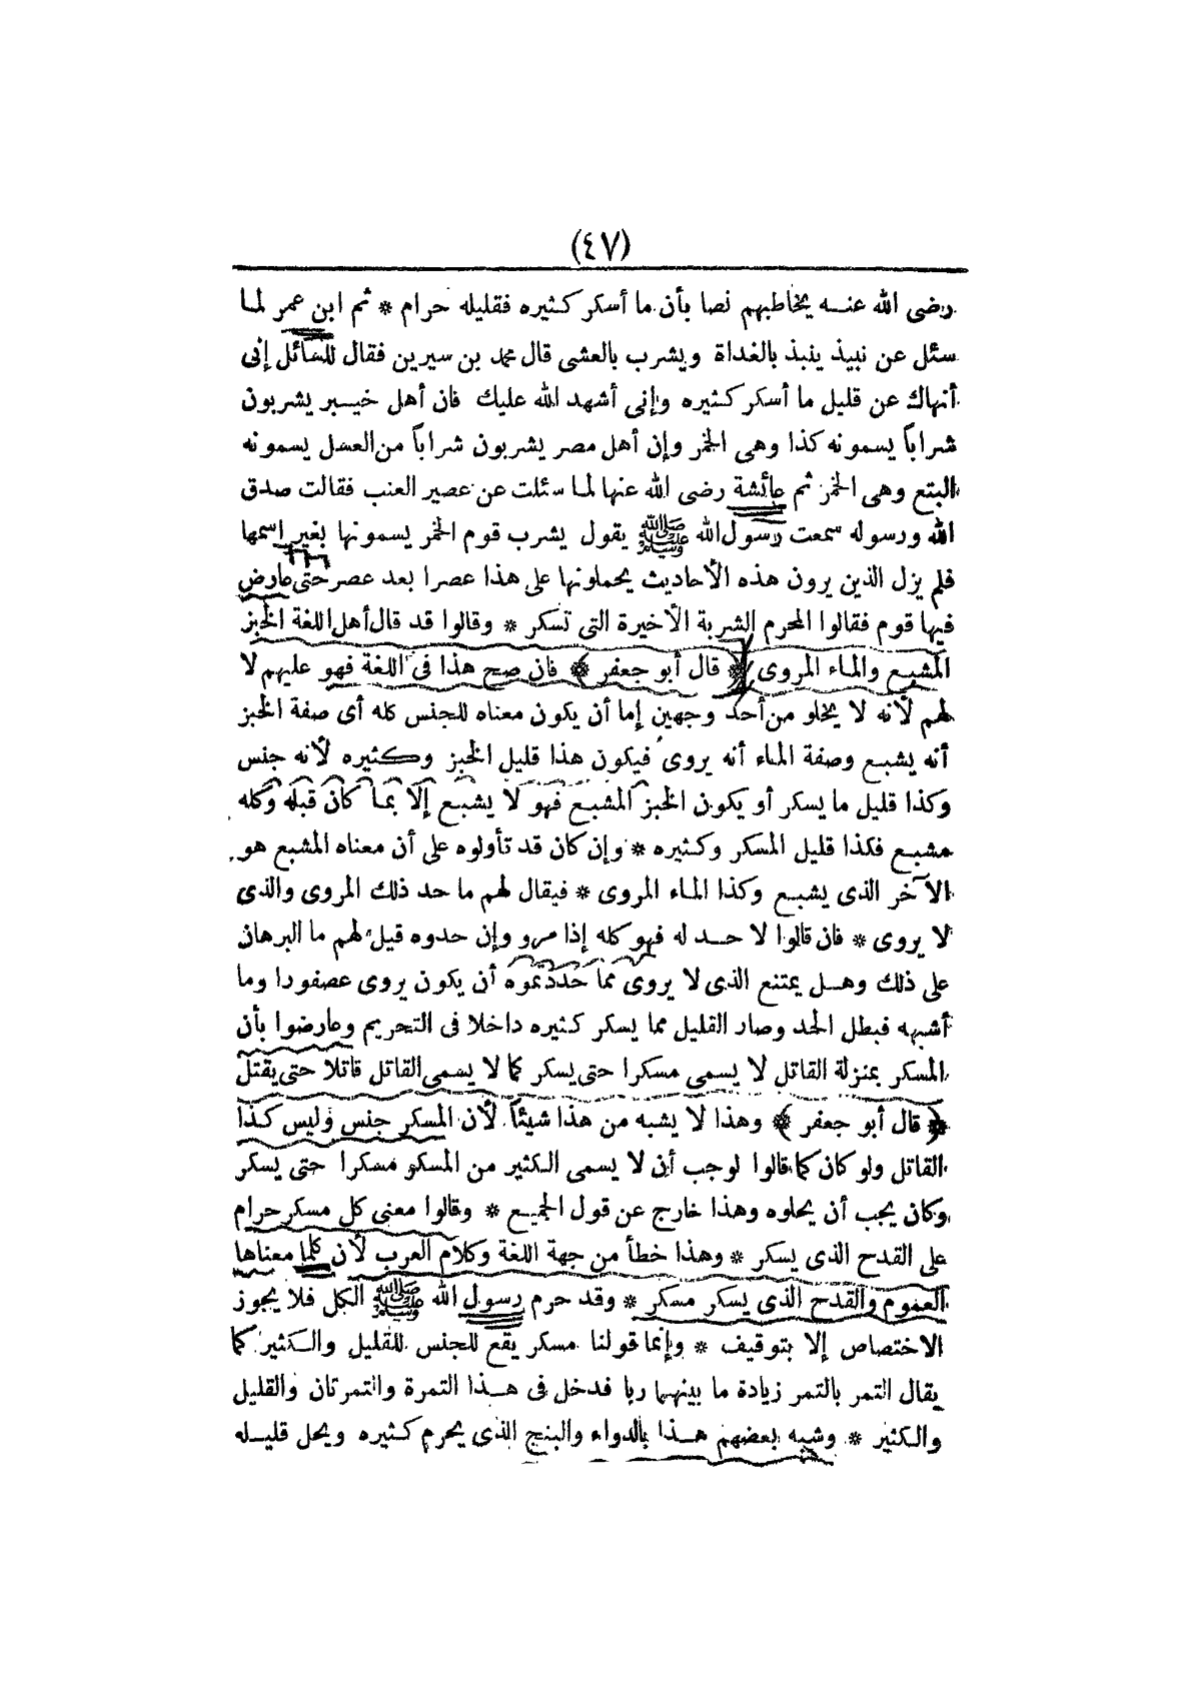 (٤٧)
رضى الله عنه يخاطبهم نصا بأن ما أسكر كثيره فقليله حرام * ثم ابن عمر لما
سئل عن نبيذ ينبذ بالغداة ويشرب بالعشى قال محمد بن سيرين فقال للسائل إنى
أنهاك عن قليل ما أسكر كثيره وإنى أشهد الله عليك فان أهل خيبر يشربون
شراباً يسمونه كذا وهى الخمر وإن أهل مصر يشربون شراباً من العسل يسمونه
البتع وهى الخمر ثم عائشة رضى الله عنها لما سئلت عن عصير العنب فقالت صدق
الله ورسوله سمعت رسول الله ﷺ يقول يشرب قوم الخمر يسمونها بغير اسمها
فلم يزل الذين يرون هذه الأحاديث يحملونها على هذا عصرا بعد عصر حتى عارض
فيها قوم فقالوا المحرم الشربة الأخيرة التى تسكر * وقالوا قد قال أهل اللغة الخبز
المشبع والماء المروى ﴿ قال أبو جعفر ﴾ فان صح هذا فى اللغة فهو عليهم لا
لهم لأنه لا يخلو من أحد وجهين إما أن يكون معناه للجنس كله أى صفة الخبز
أنه يشبع وصفة الماء أنه يروى فيكون هذا قليل الخبز وكثيره لأنه جنس
وكذا قليل ما يسكر أو يكون الخبز المشبع فهو لا يشبع إلا بما كان قبله وكله
مشبع فكذا قليل المسكر وكثيره * وإن كان قد تأولوه على أن معناه المشبع هو
الآخر الذى يشبع وكذا الماء المروى * فيقال لهم ما حد ذلك المروى والذى
لا يروى * فان قالوا لا حد له فهو كله إذا مرو وإن حدوه قيل لهم ما البرهان
على ذلك وهل يمتنع الذى لا يروى مما حددتموه أن يكون يروى عصفورا وما
أشبهه فبطل الحد وصار القليل مما يسكر كثيره داخلا فى التحريم وعارضوا بأن
المسكر بمنزلة القاتل لا يسمى مسكرا حتى يسكر كما لا يسمى القاتل قاتلا حتى يقتل
﴿ قال أبو جعفر ﴾ وهذا لا يشبه من هذا شيئاً لأن المسكر جنس وليس كذا
القاتل ولو كان كما قالوا لوجب أن لا يسمى الكثير من المسكر مسكرا حتى يسكر
وكان يجب أن يحلوه وهذا خارج عن قول الجميع * وقالوا معنى كل مسكر حرام
على القدح الذى يسكر * وهذا خطأ من جهة اللغة وكلام العرب لأن كلما معناها
العموم والقدح الذى يسكر مسكر * وقد حرم رسول الله ﷺ الكل فلا يجوز
الاختصاص إلا بتوقيف * وإنما قولنا مسكر يقع للجنس للقليل والكثير كما
يقال التمر بالتمر زيادة ما بينهما ربا فدخل فى هذا التمرة والتمرتان والقليل
والكثير * وشبه بعضهم هذا بالدواء والبنج الذى يحرم كثيره ويحل قليله